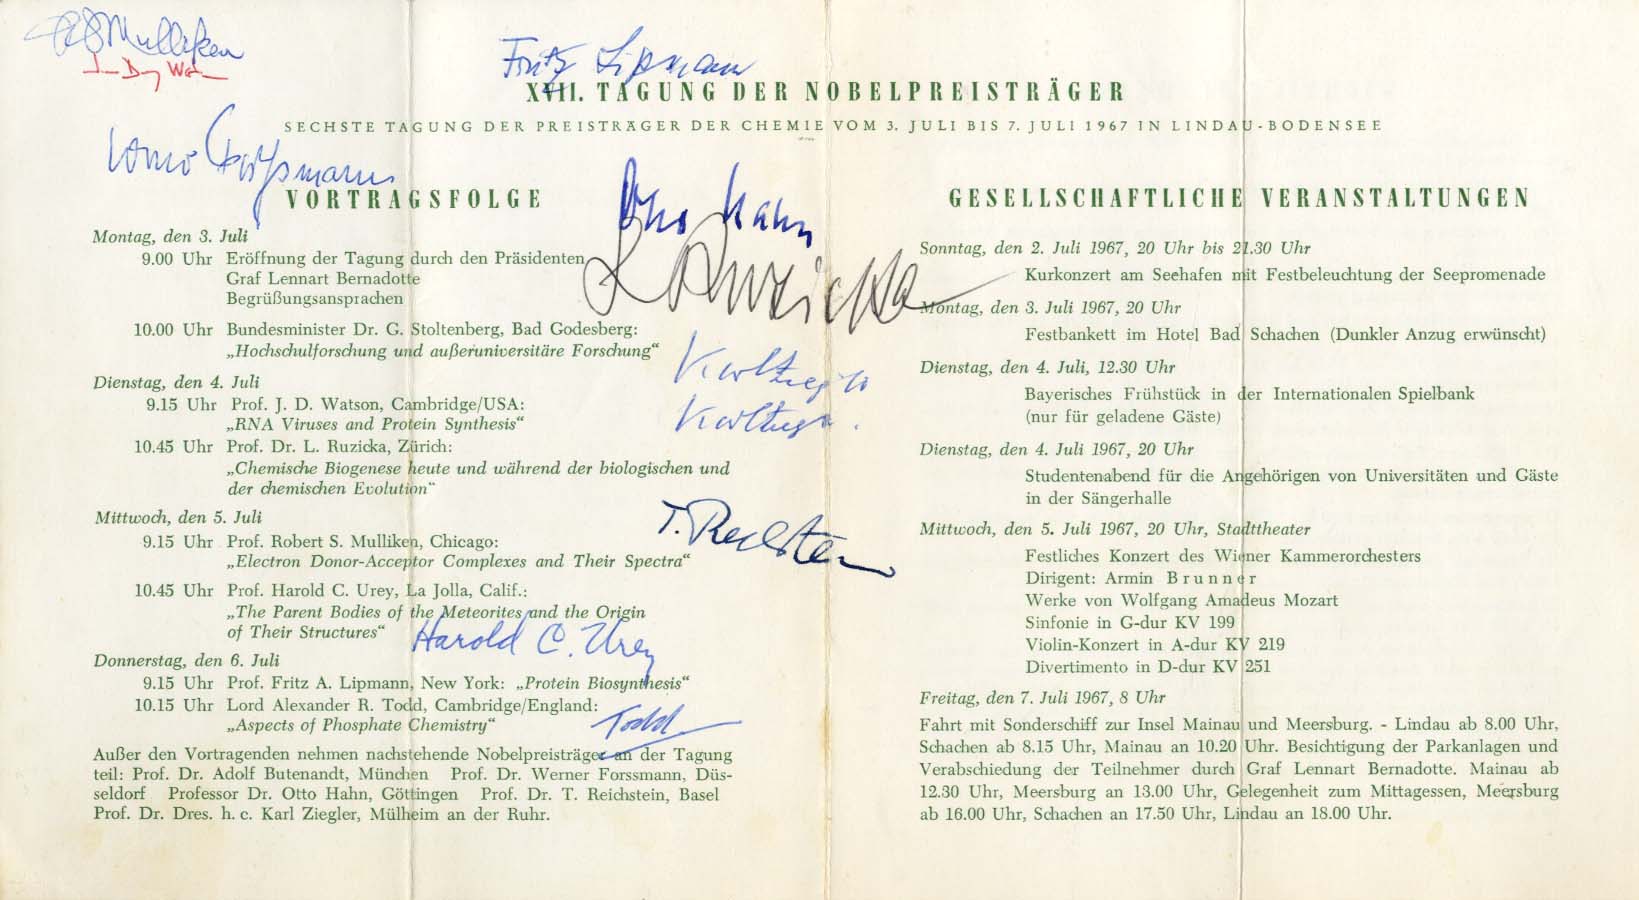 RS Mulliken
Fritz Lipmann
XVII. TAGUNG DER NOBELPREISTRÄGER
SECHSTE TAGUNG DER PREISTRÄGER DER CHEMIE VOM 3. JULI BIS 7. JULI 1967 IN LINDAU-BODENSEE
Forssmann
VORTRAGSFOLGE
Montag, den 3. Juli
9.00 Uhr Eröffnung der Tagung durch den Präsidenten
Graf Lennart Bernadotte
Begrüßungsansprachen
10.00 Uhr Bundesminister Dr. G. Stoltenberg, Bad Godesberg:
„Hochschulforschung und außeruniversitäre Forschung“
Dienstag, den 4. Juli
9.15 Uhr Prof. J. D. Watson, Cambridge/USA:
„RNA Viruses and Protein Synthesis“
10.45 Uhr Prof. Dr. L. Ruzicka, Zürich:
„Chemische Biogenese heute und während der biologischen und
der chemischen Evolution“
Mittwoch, den 5. Juli
9.15 Uhr Prof. Robert S. Mulliken, Chicago:
„Electron Donor-Acceptor Complexes and Their Spectra“
10.45 Uhr Prof. Harold C. Urey, La Jolla, Calif.:
„The Parent Bodies of the Meteorites and the Origin
of Their Structures“
Harold C. Urey
Donnerstag, den 6. Juli
9.15 Uhr Prof. Fritz A. Lipmann, New York: „Protein Biosynthesis“
10.15 Uhr Lord Alexander R. Todd, Cambridge/England:
„Aspects of Phosphate Chemistry“
Todd
Außer den Vortragenden nehmen nachstehende Nobelpreisträger an der Tagung
teil: Prof. Dr. Adolf Butenandt, München Prof. Dr. Werner Forssmann, Düs-
seldorf Professor Dr. Otto Hahn, Göttingen Prof. Dr. T. Reichstein, Basel
Prof. Dr. Dres. h. c. Karl Ziegler, Mülheim an der Ruhr.
Otto Hahn
L Ruzicka
Karl Ziegler
Karl Ziegler
T. Reichstein
GESELLSCHAFTLICHE VERANSTALTUNGEN
Sonntag, den 2. Juli 1967, 20 Uhr bis 21.30 Uhr
Kurkonzert am Seehafen mit Festbeleuchtung der Seepromenade
Montag, den 3. Juli 1967, 20 Uhr
Festbankett im Hotel Bad Schachen (Dunkler Anzug erwünscht)
Dienstag, den 4. Juli, 12.30 Uhr
Bayerisches Frühstück in der Internationalen Spielbank
(nur für geladene Gäste)
Dienstag, den 4. Juli 1967, 20 Uhr
Studentenabend für die Angehörigen von Universitäten und Gäste
in der Sängerhalle
Mittwoch, den 5. Juli 1967, 20 Uhr, Stadttheater
Festliches Konzert des Wiener Kammerorchesters
Dirigent: Armin Brunner
Werke von Wolfgang Amadeus Mozart
Sinfonie in G-dur KV 199
Violin-Konzert in A-dur KV 219
Divertimento in D-dur KV 251
Freitag, den 7. Juli 1967, 8 Uhr
Fahrt mit Sonderschiff zur Insel Mainau und Meersburg. - Lindau ab 8.00 Uhr,
Schachen ab 8.15 Uhr, Mainau an 10.20 Uhr. Besichtigung der Parkanlagen und
Verabschiedung der Teilnehmer durch Graf Lennart Bernadotte. Mainau ab
12.30 Uhr, Meersburg an 13.00 Uhr, Gelegenheit zum Mittagessen, Meersburg
ab 16.00 Uhr, Schachen an 17.50 Uhr, Lindau an 18.00 Uhr.